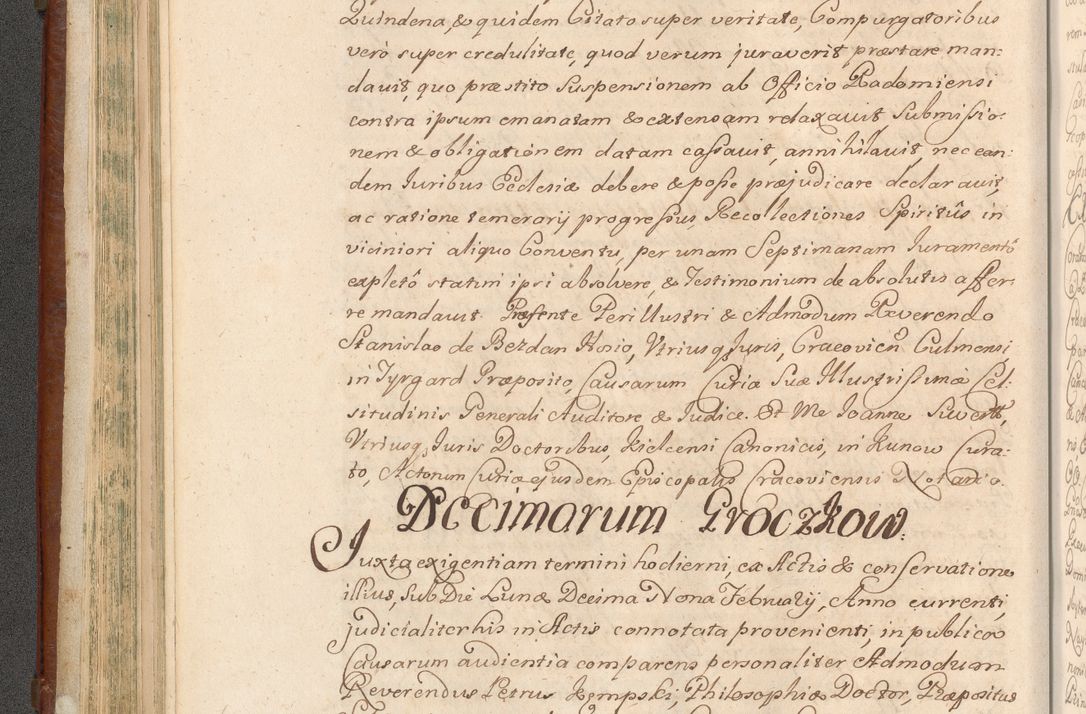 Quindena, & quidem Citato super veritate, Compurgatoribus
verò super credulitate, quod verum juraverit præstare man:
davit, quo præstito suspensionem ab Officio Radomiensi
contra ipsum emanatam & extensam relaxavit submissio:
nem & obligationem datam cassavit, annihilavit, nec ean:
dem Juribus Ecclesiæ debere & posse præjudicare declaravit,
ac ratione temerarij progressus, Recollectiones Spiritûs in
viciniori aliquo Conventu, per unam Septimanam Juramentô
expletô statim ipsi absolvere, & Testimonium de absolutis affer:
re mandavit Præsente Perillustri & Admodum Reverendo
Stanislao de Bezdan Hosio, Vtriusq Juris, Cracovien Culmensi,
in Tyrgard Præposito, Causarum Curiæ Suæ Illustrissimæ Cel:
situdinis Generali Auditore & Judice. Et Me Joanne Siwertt,
Vtriusq, Juris Doctoribus, Kielcensi Canonicis, in Kunow Cura:
to, Actorum Curiæ ejusdem Episcopalis Cracoviensis Notario.
Decimarum Groczkow.
Juxta exigentiam termini hodierni, ex Actis & conservatione
illius, Sub Die Lunæ Decima Nona February, Anno currenti,
judicialiter his in Actis connotata provenienti, in publica
Causarum audientia comparens personaliter Admodum
Reverendus Petrus Kempski, Philosophiæ Doctor, Præpositus